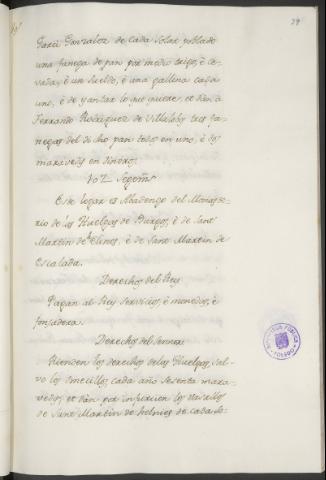 29
Garci Gonzalez de cada solar poblado
una fanega de pan por medio trigo, è ce-
vada, è un sueldo, è una gallina cada
uno, è de yantar lo que quiere, et dan à
Ferrando Rodriguez de Villalobos tres fa-
negas del dicho pan todo en uno, è dos
maravedis en dineros.
Este logar es Abadengo del Monaste-
rio de las Huelgas de Burgos, è de Sant
Martin de Elines, è de Sant Martin de
Escalada.
Derechos del Rey
Pagan al Rey servicios, è monedas, è
fonsadera.
Derechos del Sennor
los derechos de las Huelgas, sal-
vo los omecillos cada año sesenta mara-
vedis, et dan por infurcion los vasallos
de Sant Martin de helnies de cada so-
TOLEDO